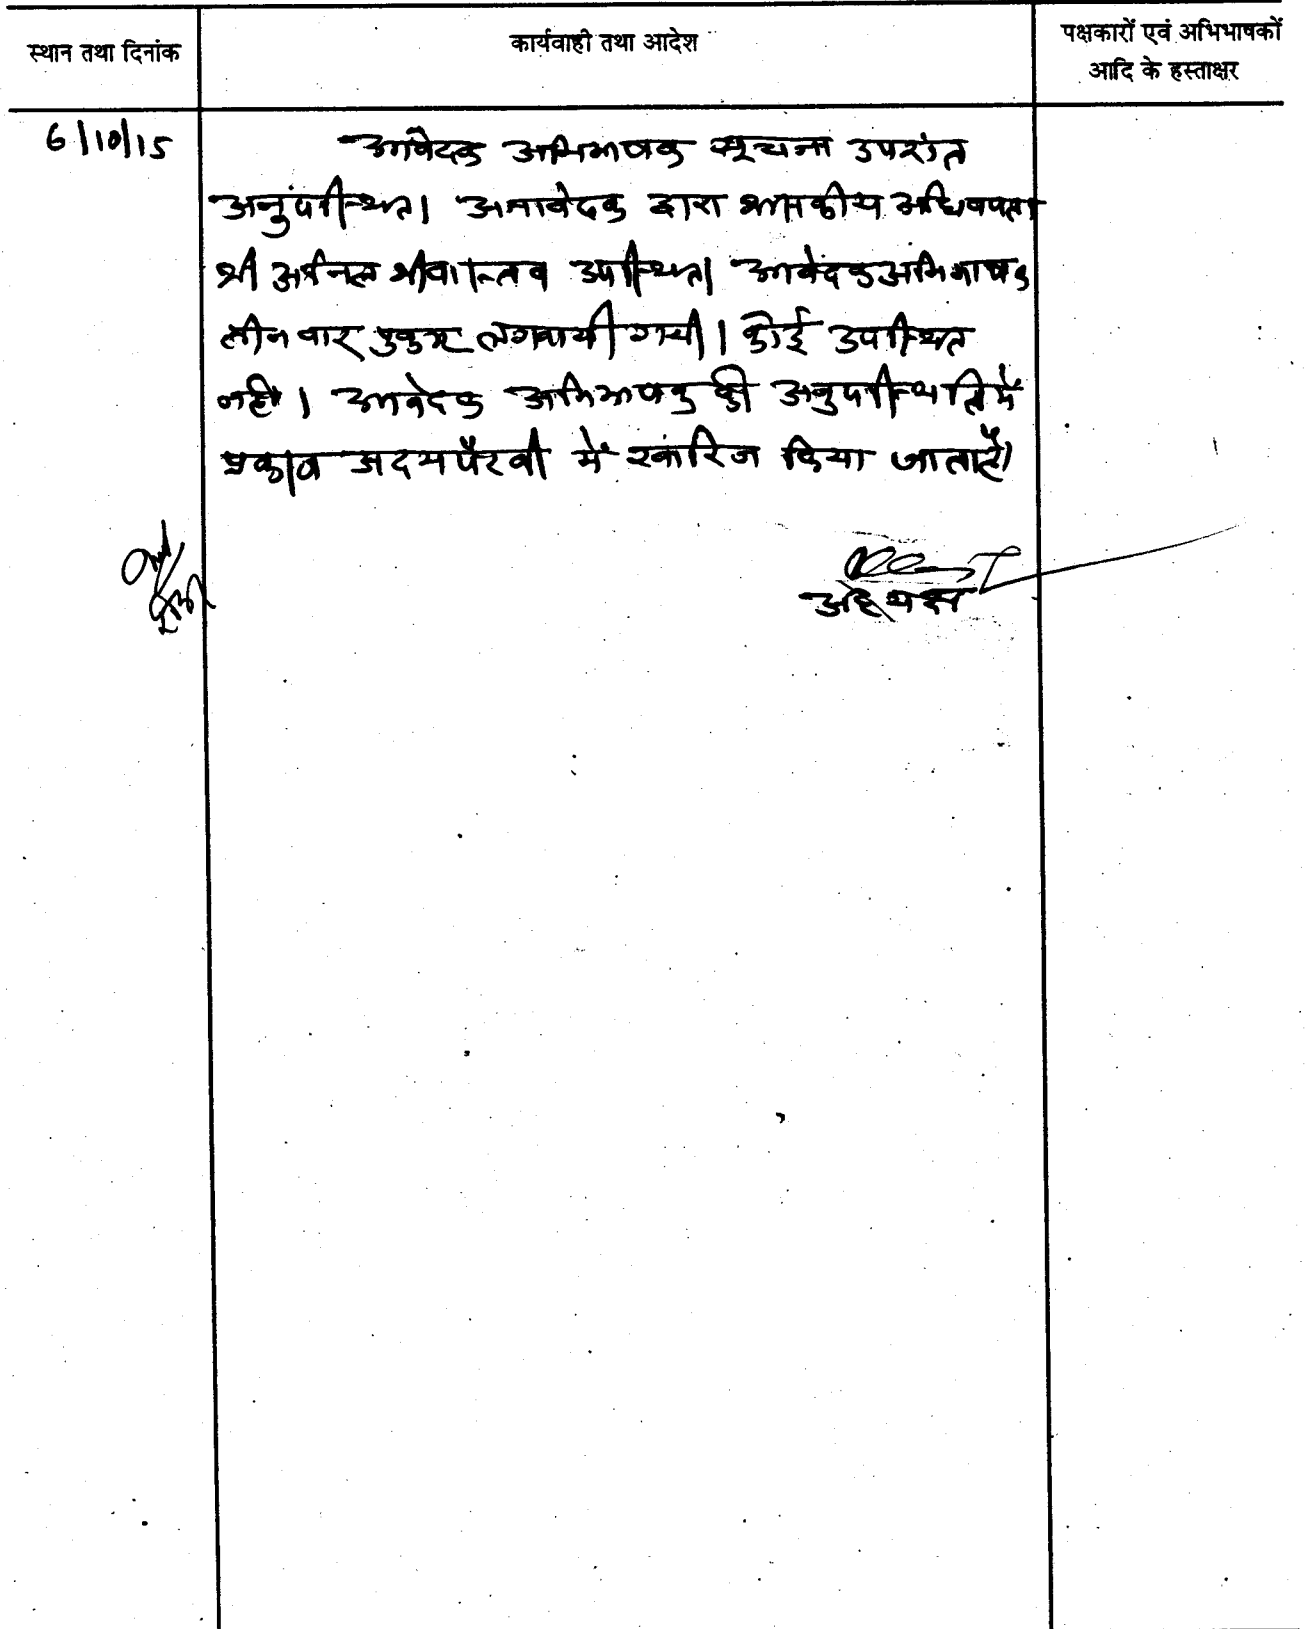 स्थान तथा दिनांक
कार्यवाही तथा आदेश
पक्षकारों एवं अभिभाषकों
आदि के हस्ताक्षर
6/10/15
आवेदक अभिभाषक सूचना उपरांत
अनुपस्थित। अनावेदक द्वारा शासकीय अधिवक्ता
श्री श्रीवास्तव उपस्थित। आवेदक अभिभाषक
तीन बार पुकार लगवायी गयी। कोई उपस्थित
नहीं। आवेदक अभिभाषक की अनुपस्थिति में
प्रकरण अदम पैरवी में खारिज किया जाता है।
अध्यक्ष